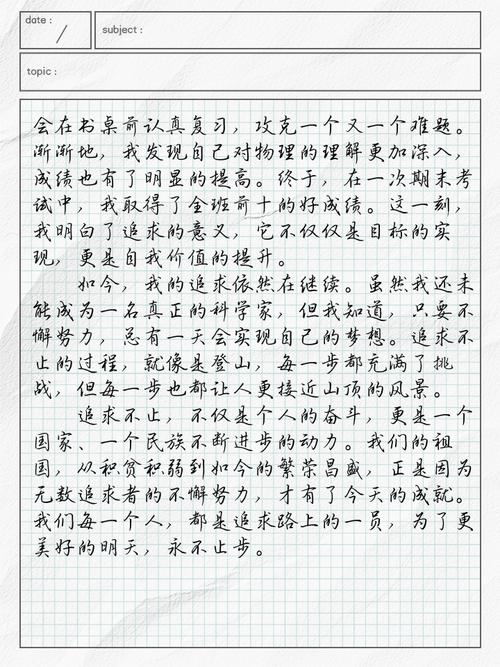 date :
subject :
topic :
会在书桌前认真复习，攻克一个又一个难题。
渐渐地，我发现自己对物理的理解更加深入，
成绩也有了明显的提高。终于，在一次期末考
试中，我取得了全班前十的好成绩。这一刻，
我明白了追求的意义，它不仅仅是目标的实
现，更是自我价值的提升。
如今，我的追求依然在继续。虽然我还未
能成为一名真正的科学家，但我知道，只要不
懈努力，总有一天会实现自己的梦想。追求不
止的过程，就像是登山，每一步都充满了挑
战，但每一步也都让人更接近山顶的风景。
追求不止，不仅是个人的奋斗，更是一个
国家、一个民族不断进步的动力。我们的祖
国，从积贫积弱到如今的繁荣昌盛，正是因为
无数追求者的不懈努力，才有了今天的成就。
我们每一个人，都是追求路上的一员，为了更
美好的明天，永不止步。